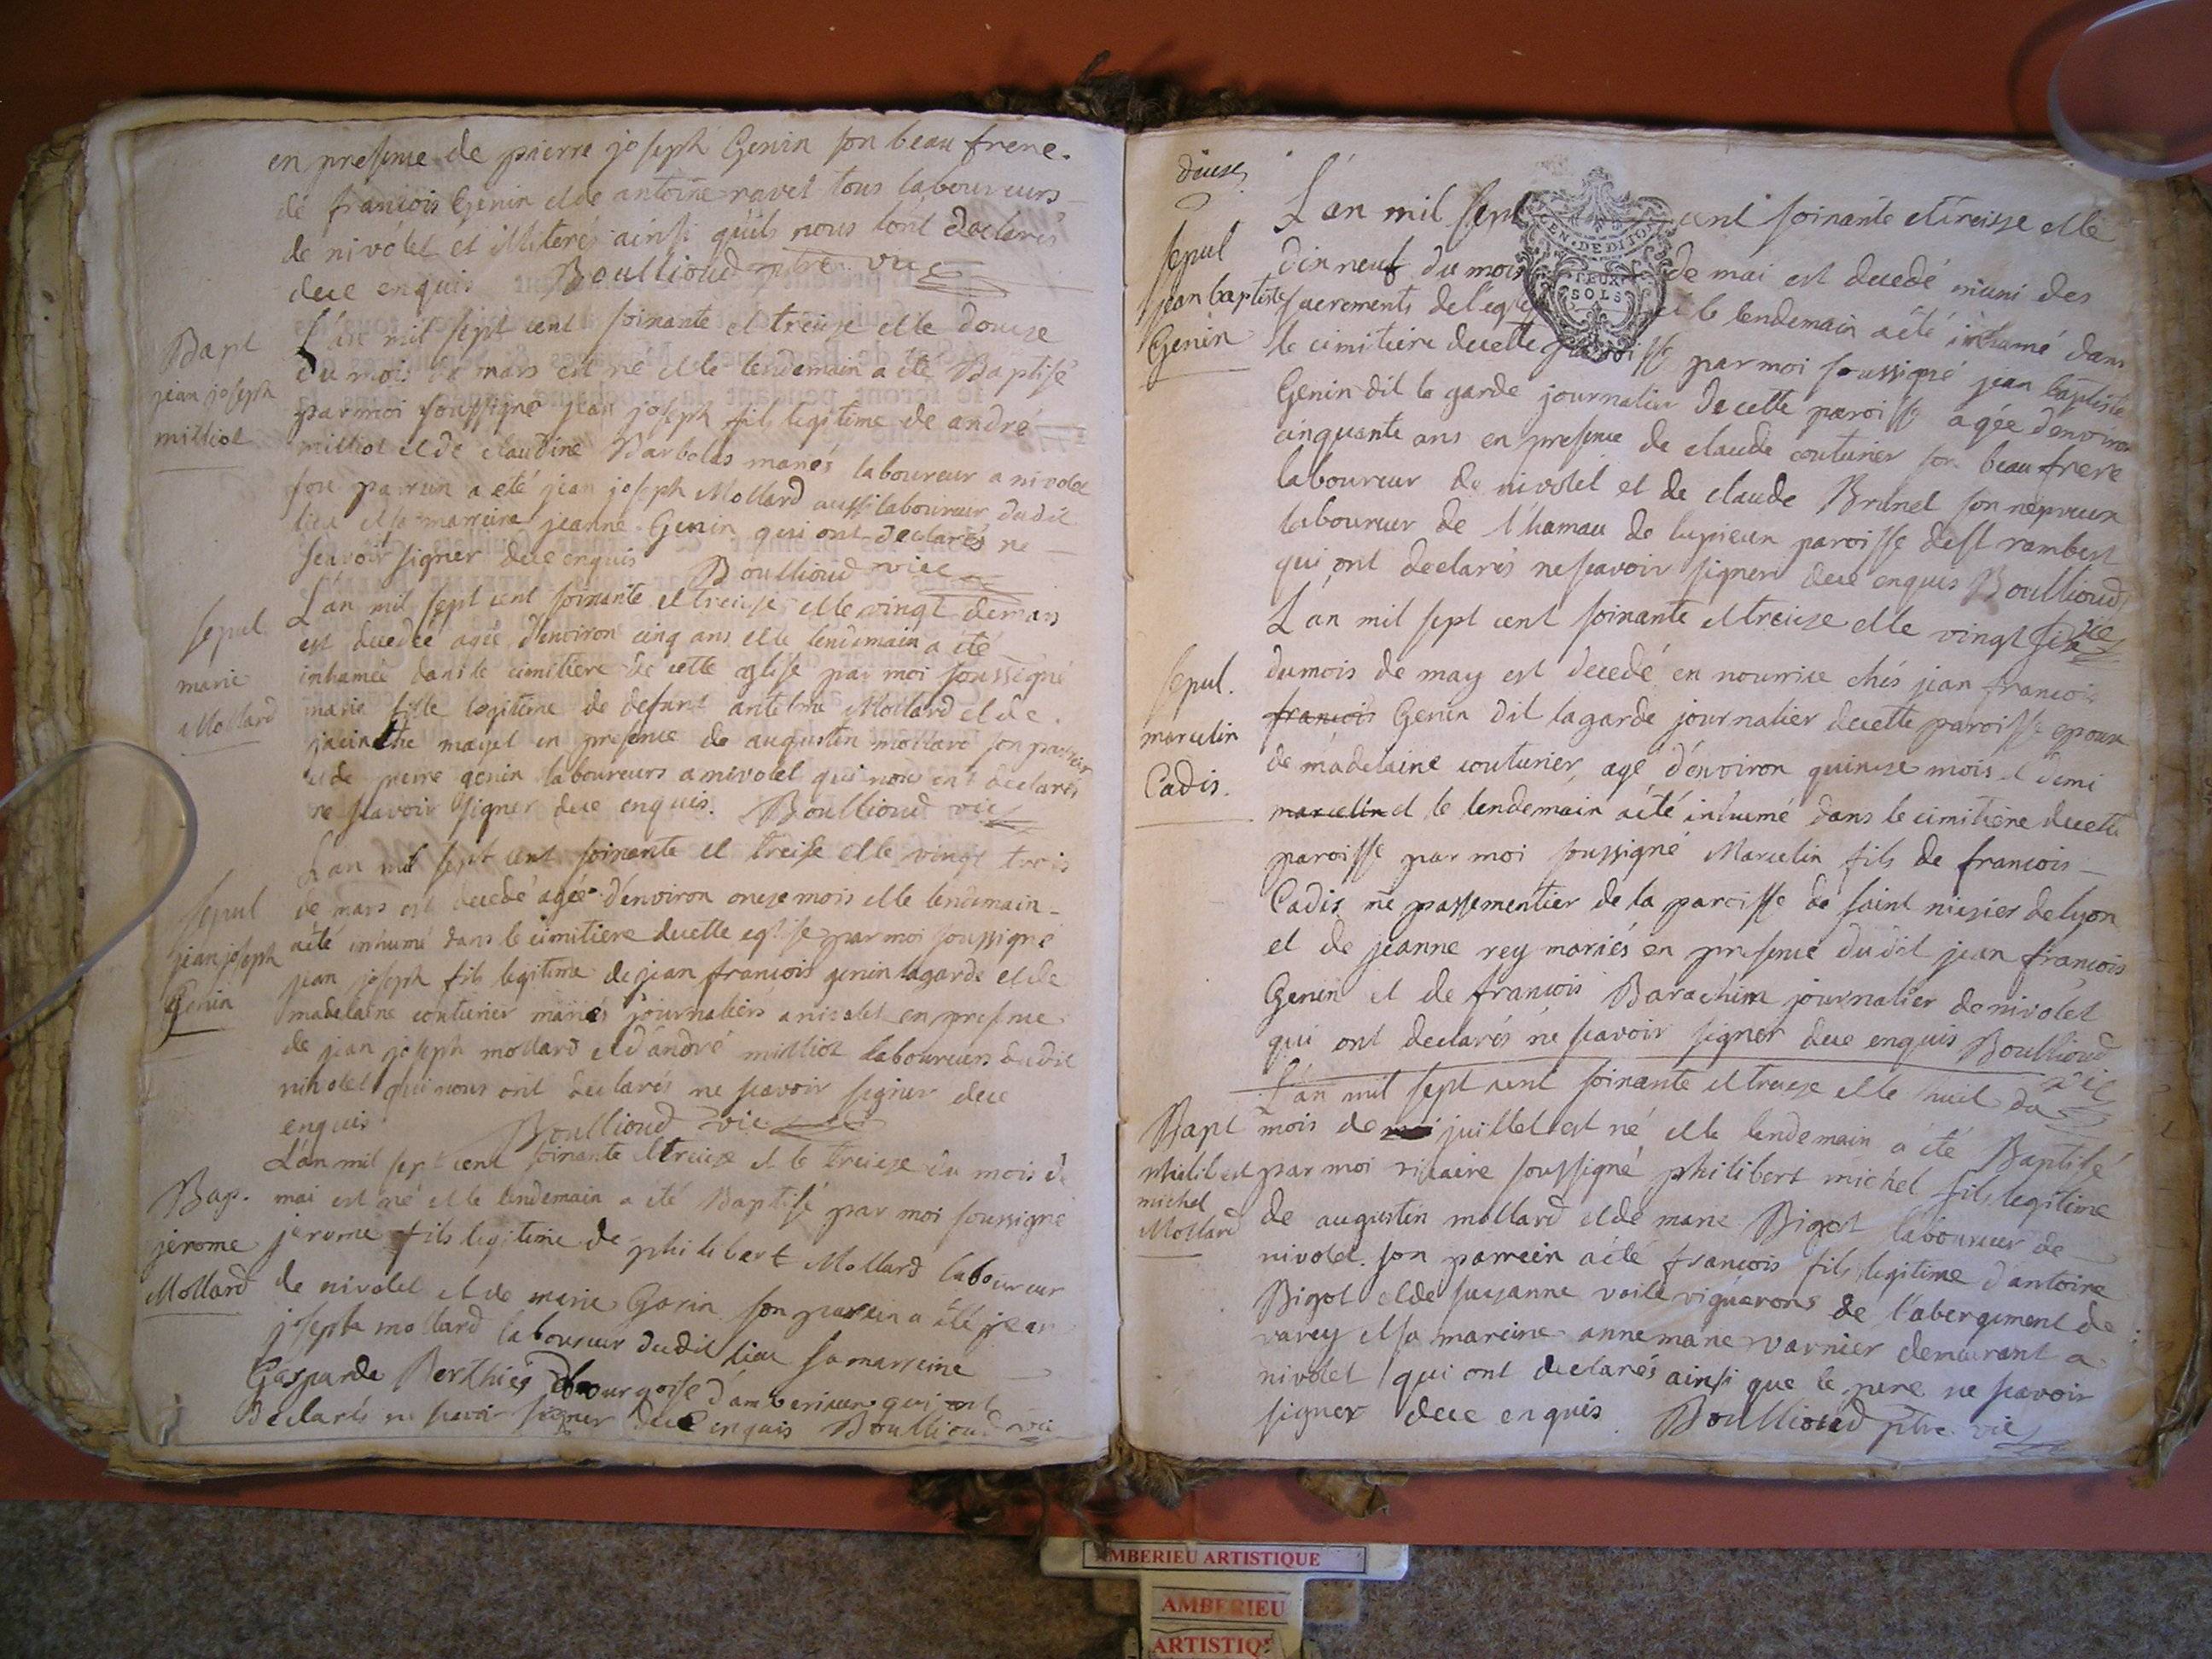 en presence de pierre joseph Genin son beau frere.
de francois Genin et de antoine ravet tous laboureurs
de nivolet et illiterés ainsi quils nous lont declarés
dece enquis Boullioud ptre vic
Bapt
jean joseph
milliot
L'an mil sept cent soixante et treize et le douze
du mois de mars est né et le lendemain a été Baptisé
par moi soussigné jean joseph fils legitime de andré
milliot et de claudine Barbolas mariés laboureur a nivolet
son parrin a eté jean joseph Mollard aussi laboureur dudit
lieu et sa marreine jeanne Genin qui ont declarés ne
scavoir signer dece enquis Boullioud vic
sepul
marie
Mollard
L'an mil sept cent soixante et treize et le vingt de mars
est decedée agée d'environ cinq ans et le lendemain a été
inhumée dans le cimitiere de cette eglise par moi soussigné
marie fille legitime de defunt antelme Mollard et de
jacinthe mayet en presence de augustin mollard son
et de pierre genin laboureurs a nivolet qui nous ont declarés
ne scavoir signer dece enquis. Boullioud vic
sepul
jean joseph
Genin
L'an mil sept cent soixante et treise et le vingt trois
de mars est decedé agée d'environ onze mois et le lendemain
aété inhumé dans le cimitiere decette eglise par moi soussigné
jean joseph fils legitime de jean francois genin lagarde et de
madelaine couturier mariés journaliers a nivolet en presence
de jean joseph mollard et d'andré milliot laboureurs dudit
nivolet qui nous ont declarés ne scavoir signer dece
enquis Boullioud vic
Bap.
jerome
Mollard
L'an mil sept cent soixante et treize et le treize du mois de
mai est né et le lendemain a été Baptisé par moi soussigné
jerome fils legitime de philibert Mollard laboureur
de nivolet et de marie Genin son parrein a été jean
joseph mollard laboureur dudit lieu sa marreine
Gasparde Berthier bourgoise d'amberieux qui ont
declarés ne scavoir signer dece enquis Boullioud vic
deux
sepul
jean baptiste
Genin
L'an mil sept cent soixante et treize et le
dix neuf du mois de mai est decedé muni des
sacrements de l'eglise et le lendemain aété inhumé dans
le cimitiere decette paroisse par moi soussigné jean baptiste
Genin dit la garde journalier de cette paroisse agée d'environ
cinquante ans en presence de claude couturier son beau frere
laboureur de nivolet et de claude Brunel son nepveux
laboureur de l'hamau de lupieux paroisse de st rambert
qui ont declarés ne scavoir signer dece enquis Boullioud
vic
sepul.
marcelin
Cadis.
L'an mil sept cent soixante et treize et le vingt six
du mois de may est decedé en nourrice chés jean francois
francois Genin dit lagarde journalier decette paroisse epoux
de madelaine couturier, agé d'environ quinze mois et demi
marcelin et le lendemain aété inhumé dans le cimitiere decette
paroisse par moi soussigné Marcelin fils de francois
Cadis me passementier de la paroisse de saint nizier de lyon
et de jeanne rey mariés en presence dudit jean francois
Genin et de francois Barachin journalier de nivolet
qui ont declarés ne scavoir signer dece enquis Boullioud
vic
Bapt
philibert
michel
Mollard
L'an mil sept cent soixante et treize et le huit du
mois de juillet est né et le lendemain a été Baptisé
par moi vicaire soussigné philibert michel fils legitime
de augustin mollard et de marie Bigot laboureur de
nivolet. son parrein aété francois fils legitime d'antoine
Bigot et de suzanne voile vignerons de l'abergement de
varey et sa mareine anne marie varnier demeurant a
nivolet qui ont declarés ainsi que le pere ne scavoir
signer dece enquis. Boullioud ptre vic
GEN. DE DIJON
DEUX
SOLS
AMBERIEU ARTISTIQUE
AMBERIEU
ARTISTIQ